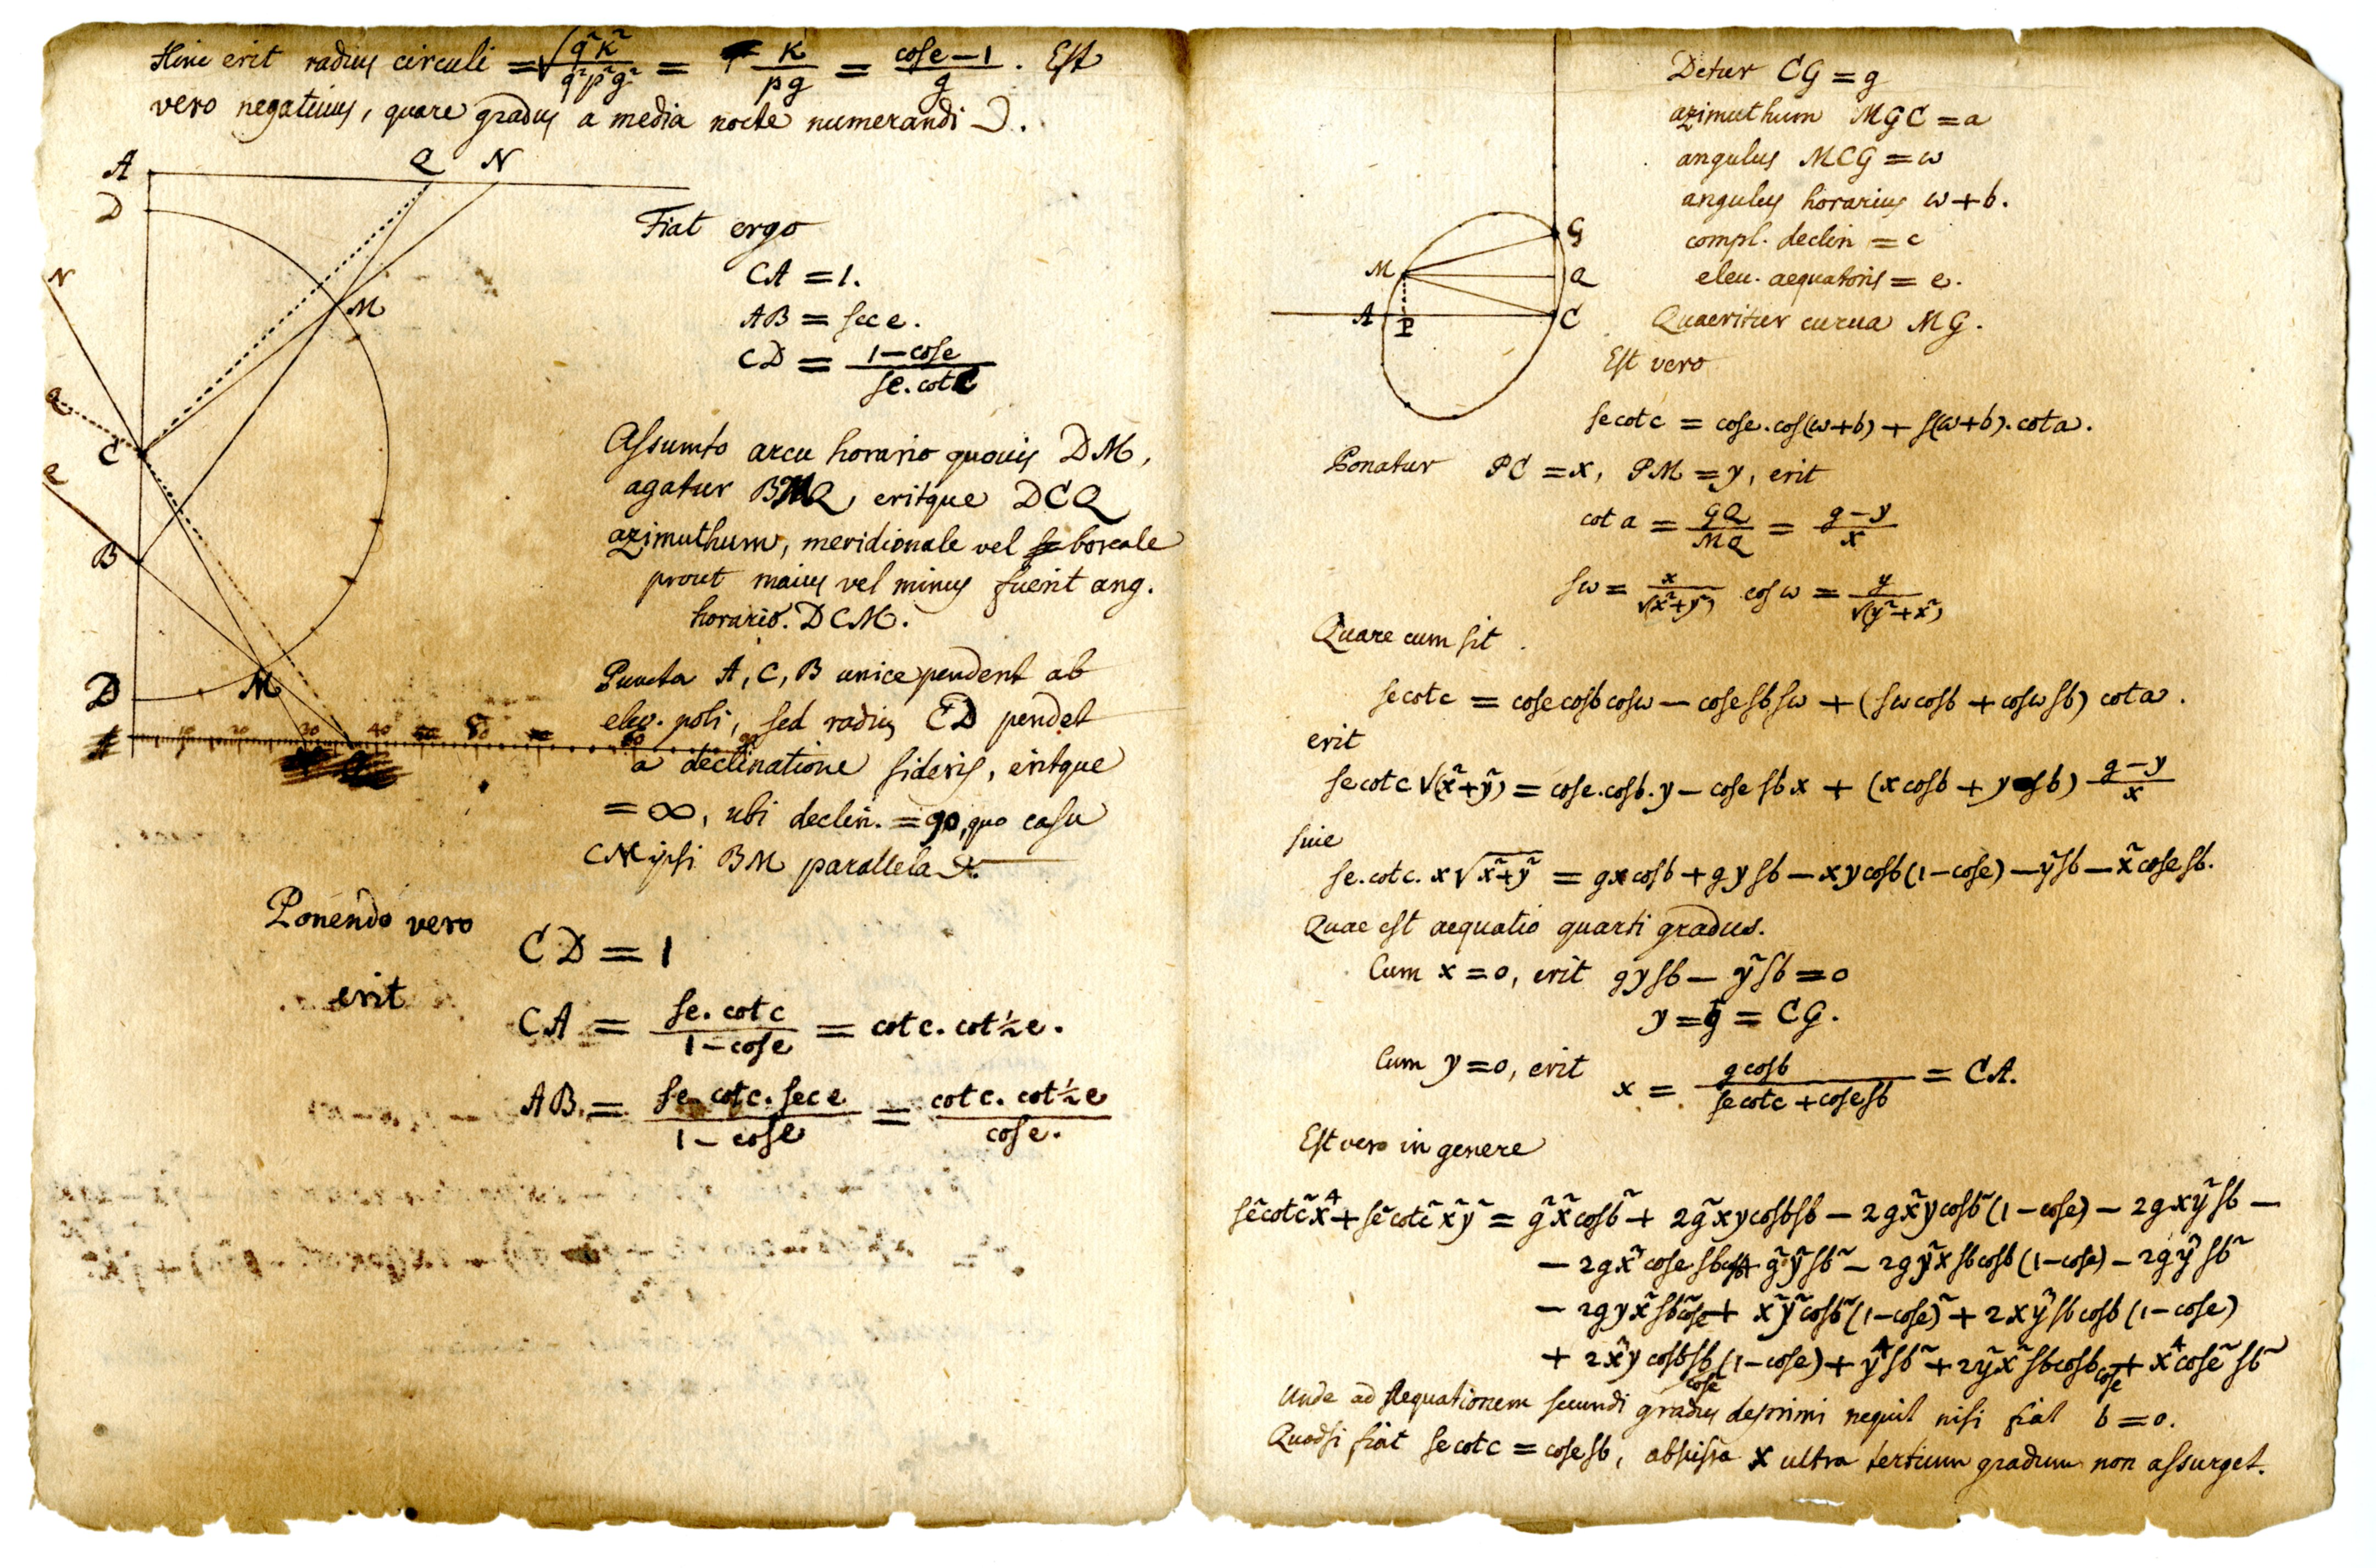 Hinc erit radius circuli = √(q²κ²/q²p²g²) = κ/pg = (cose − 1)/g. Est
vero negativus, quare gradus a media nocte numerandi
A Q N
D
Fiat ergo
CA = 1.
N
M
AB = sec e.
CD = (1 − cose)/(se. cot c)
Q
C
Q
Assumto arcu horario quovis DM,
agatur BMQ, eritque DCQ
azimuthum, meridionale vel boreale
B
prout maius vel minus fuerit ang.
horario. DCM.
Puncta A, C, B unice pendent ab
D M
elev. poli, sed radius CD pendet
10 20 30 40 50 60 90
a declinatione sideris, eritque
= ∞, ubi declin. = 90, quo casu
CN ipsi BM parallela
Ponendo vero
CD = 1
erit
CA = (se. cot c)/(1 − cose) = cot c. cot ½ e.
AB = (se cot c. sec e)/(1 − cose) = (cot c. cot ½ e)/cose.
Detur CG = g
azimuthum MGC = a
angulus MCG = ω
angulus horarius ω + b.
compl. declin = c
G
M Q
elev. aequatoris = e.
A P C
Quaeritur curva MG.
Est vero
se cot c = cose. cos(ω+b) + s(ω+b). cot a.
Ponatur PC = x, PM = y, erit
cot a = GQ/MQ = (g − y)/x
sω = x/√(x²+y²) cos ω = y/√(y²+x²)
Quare cum sit
se cot c = cose cosb cosω − cose sb sω + (sω cosb + cosω sb) cot a.
erit
se cot c √(x²+y²) = cose. cosb. y − cose sb x + (x cosb + y sb) (g − y)/x
sive
se. cot c. x √(x²+y²) = gx cosb + gy sb − xy cosb (1 − cose) − y² sb − x² cose sb.
Quae est aequatio quarti gradus.
Cum x = 0, erit gy sb − y² sb = 0
y = g = CG.
Cum y = 0, erit x = (g cosb)/(se cot c + cose sb) = CA.
Est vero in genere
se² cot c² x⁴ + se² cot c² x² y² = g² x² cosb² + 2g² xy cosb sb − 2g x² y cosb² (1 − cose) − 2g x y² sb −
− 2g x³ cose sb cosb + g² y² sb² − 2g y² x sb cosb (1 − cose) − 2g y³ sb²
− 2g y x² sb² cose + x² y² cosb² (1 − cose)² + 2x y³ sb cosb (1 − cose)
+ 2x³ y cosb sb (1 − cose) cose + y⁴ sb² + 2y² x² sb cosb cose + x⁴ cose² sb²
Unde ad aequationem secundi gradus deprimi nequit nisi fiat b = 0.
Quodsi fiat se cot c = cose sb, abscissa x ultra tertium gradum non assurget.